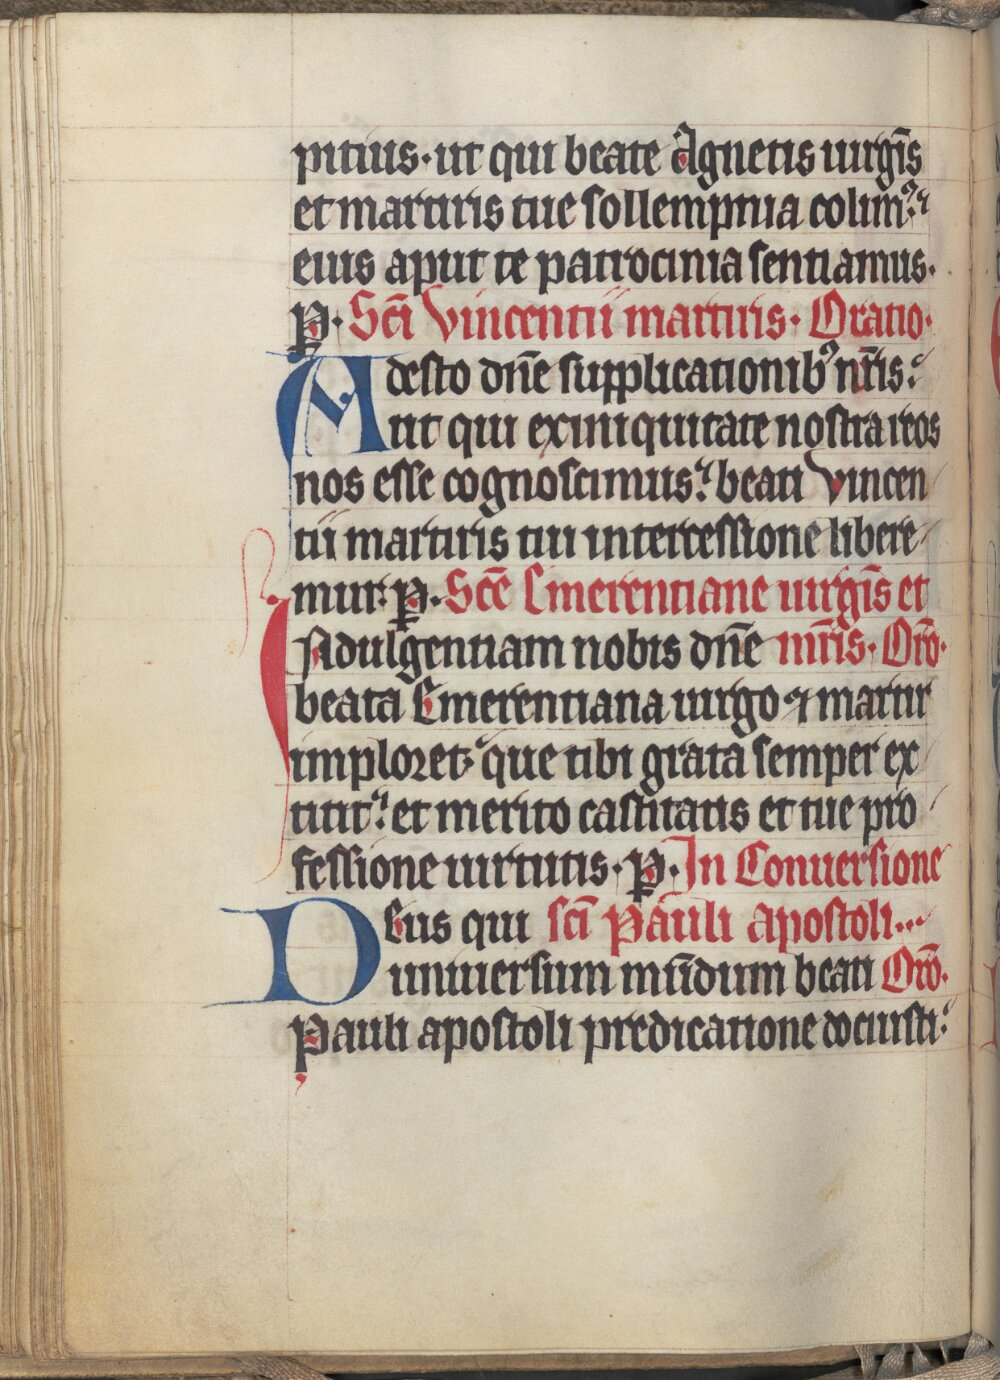 pitius· ut qui beate Agnetis uirgīs
et martiris tue sollempnia colimꝰ.
eius aput te patrocinia sentiamus.
p̲· Sc̄i Vincentii martiris· Oratio·
Adesto dn̄e supplicationibꝰ nr̄is.
ut qui ex iniquitate nostra reos
nos esse cognoscimus. beati Vincen
tii martiris tui intercessione libere
mur. p̲· Sc̄e Emerentiane uirgīs et
Indulgentiam nobis dn̄e mr̄is· Orō·
beata Emerentiana uirgo ⁊ martir
imploret. que tibi grata semper ex
titit. et merito castitatis et tue pro
fessione uirtutis· p̲· In Conuersione
Deus qui sc̄i Pauli apostoli...
uniuersum mūdum beati Orō·
Pauli apostoli predicatione docuisti.